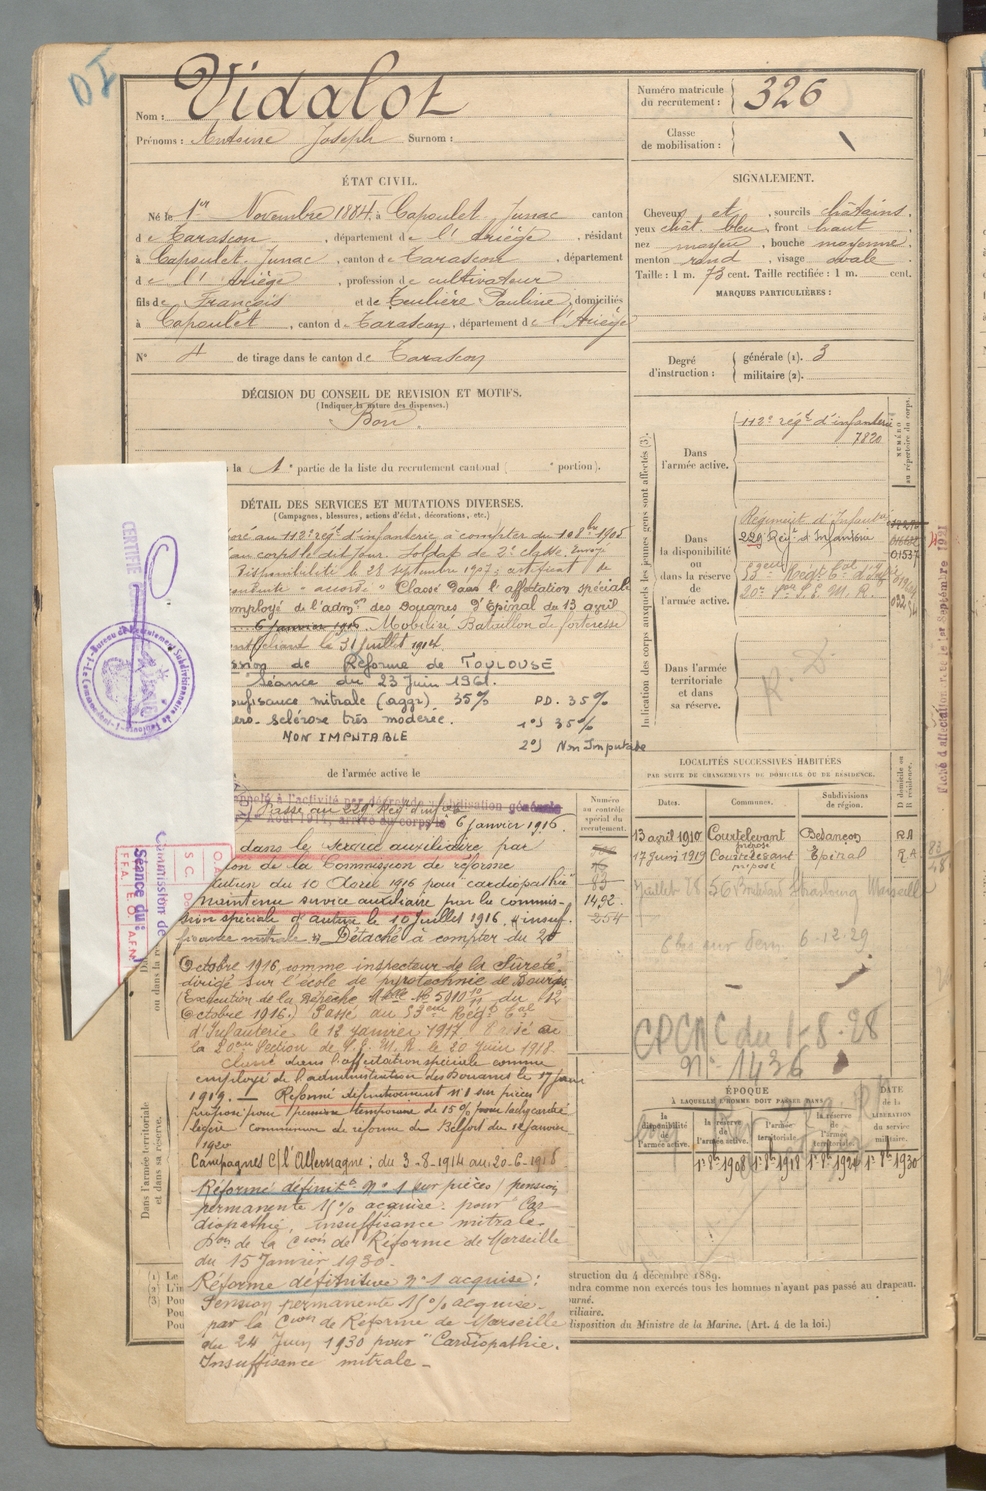 DI
Nom : Vidalot
Prénoms : Antoine Joseph Surnom :
Numéro matricule du recrutement : 326
Classe de mobilisation :
ÉTAT CIVIL.
Né le 1er Novembre 1884, à Capoulet-Junac canton
de Tarascon, département de l'Ariège, résidant
à Capoulet-Junac, canton de Tarascon, département
de l'Ariège, profession de cultivateur
fils de François et de Teulière Pauline, domiciliés
à Capoulet, canton de Tarascon, département de l'Ariège
N° 4 de tirage dans le canton de Tarascon
SIGNALEMENT.
Cheveux et, sourcils châtains.
yeux chât. bleu, front haut
nez moyen, bouche moyenne.
menton rond, visage ovale
Taille : 1 m. 73 cent. Taille rectifiée : 1 m. cent.
MARQUES PARTICULIÈRES :
Degré d'instruction : générale (1). 3
militaire (2).
DÉCISION DU CONSEIL DE REVISION ET MOTIFS.
(Indiquer la nature des dispenses.)
Bon.
la 1e partie de la liste du recrutement cantonal ( e portion).
DÉTAIL DES SERVICES ET MUTATIONS DIVERSES.
(Campagnes, blessures, actions d'éclat, décorations, etc.)
au 112e régt d'infanterie à compter du 8 8bre 1905
au corps le dit jour. Soldat de 2e classe.
disponibilité le 28 septembre 1907; certificat de
conduite "accordé" Classé dans l'affectation spéciale
employé de l'admon des Douanes d'Epinal du 13 avril
6 janvier 1916 Mobilisé Bataillon de forteresse
le 31 juillet 1914.
ssion de Réforme de TOULOUSE
Séance du 23 Juin 1961.
nsuffisance mitrale (aggr) 35% PD. 35%
sclérose très modérée. 1°) 35%
NON IMPUTABLE 2°) Non Imputable
de l'armée active le
appelé à l'activité par décret de mobilisation générale
Passé au 229e Régt d'infie
6 janvier 1916.
dans le service auxiliaire par
ion de la Commission de réforme
du 10 Avril 1916 pour "cardiopathie"
maintenu service auxiliaire par la commis-
sion spéciale d'autun le 10 juillet 1916 "insuf-
fisance mitrale" Détaché à compter du 20
Octobre 1916, comme inspecteur de la Sûreté,
dirigé sur l'école de pyrotechnie de Bourges
(Exécution de la Dépêche Mlle No 5910 du 12
Octobre 1916.) Passé au 53ème Régt Cal
d'Infanterie le 12 janvier 1917 Passé à
la 20ème Section de S.E.M.R. le 20 juin 1918.
Classé dans l'affectation spéciale comme
employé de l'administration des Douanes le 17 juin
1919. — Réformé définitivement n°1 sur pièces
proposé pour pension temporaire de 15% pour tachycardie
légère commission de réforme de Belfort du 12 janvier
1920
Campagnes c/ l'Allemagne : du 3-8-1914 au 20-6-1918
Réformé définitt n° 1 sur pièces / pension
permanente 15% acquise : pour Car-
diopathie, insuffisance mitrale.
Don de la Cion de Réforme de Marseille
du 15 Janvier 1930.
Réforme définitive n° 1 acquise :
Pension permanente 15% acquise.
par la Cion de Réforme de Marseille
du 24 Juin 1930 pour "Cardiopathie.
Insuffisance mitrale -
CERTIFIÉ
Bureau de Recrutement Subdivisionnaire de Toulouse
Commission de
Séance du :
Indication des corps auxquels les jeunes gens sont affectés (3).
NUMÉRO au répertoire du corps.
Dans l'armée active.
112e régt d'infanterie
7820
Dans la disponibilité ou dans la réserve de l'armée active.
Régiment d'Infantie
229 Régt d'Infanterie
01537
53ème Régt Cal d'Inf
20e Son S.E.M.R.
Dans l'armée territoriale et dans sa réserve.
R.D.
Fiche d'affectation le 1er Septembre 1921
LOCALITÉS SUCCESSIVES HABITÉES
PAR SUITE DE CHANGEMENTS DE DOMICILE OU DE RÉSIDENCE.
Dates. Communes. Subdivisions de région. D domicile ou R résidence.
13 avril 1910 Courtelevant préposé Besançon RA
17 juin 1919 Courtelevant préposé Epinal RA
Juillet 28 56 Strasbourg Marseille
6.12.29
CPCN C du 1-8-28
N° 1436
Numéro au contrôle spécial du recrutement.
83
1492
254
ÉPOQUE
À LAQUELLE L'HOMME DOIT PASSER DANS
DATE de la LIBÉRATION du service militaire.
la disponibilité de l'armée active. la réserve de l'armée active. l'armée territoriale. la réserve de l'armée territoriale.
1er 8bre 1908 1er 8bre 1918 1er 8bre 1924 1er 8bre 1930
ou dans la ré
Dans l'armée territoriale et dans sa réserve.
(1) Le
(2) L'in
(3) Pou
Pou
Pou
struction du 4 décembre 1889.
ndra comme non exercés tous les hommes n'ayant pas passé au drapeau.
ourné.
xiliaire.
disposition du Ministre de la Marine. (Art. 4 de la loi.)